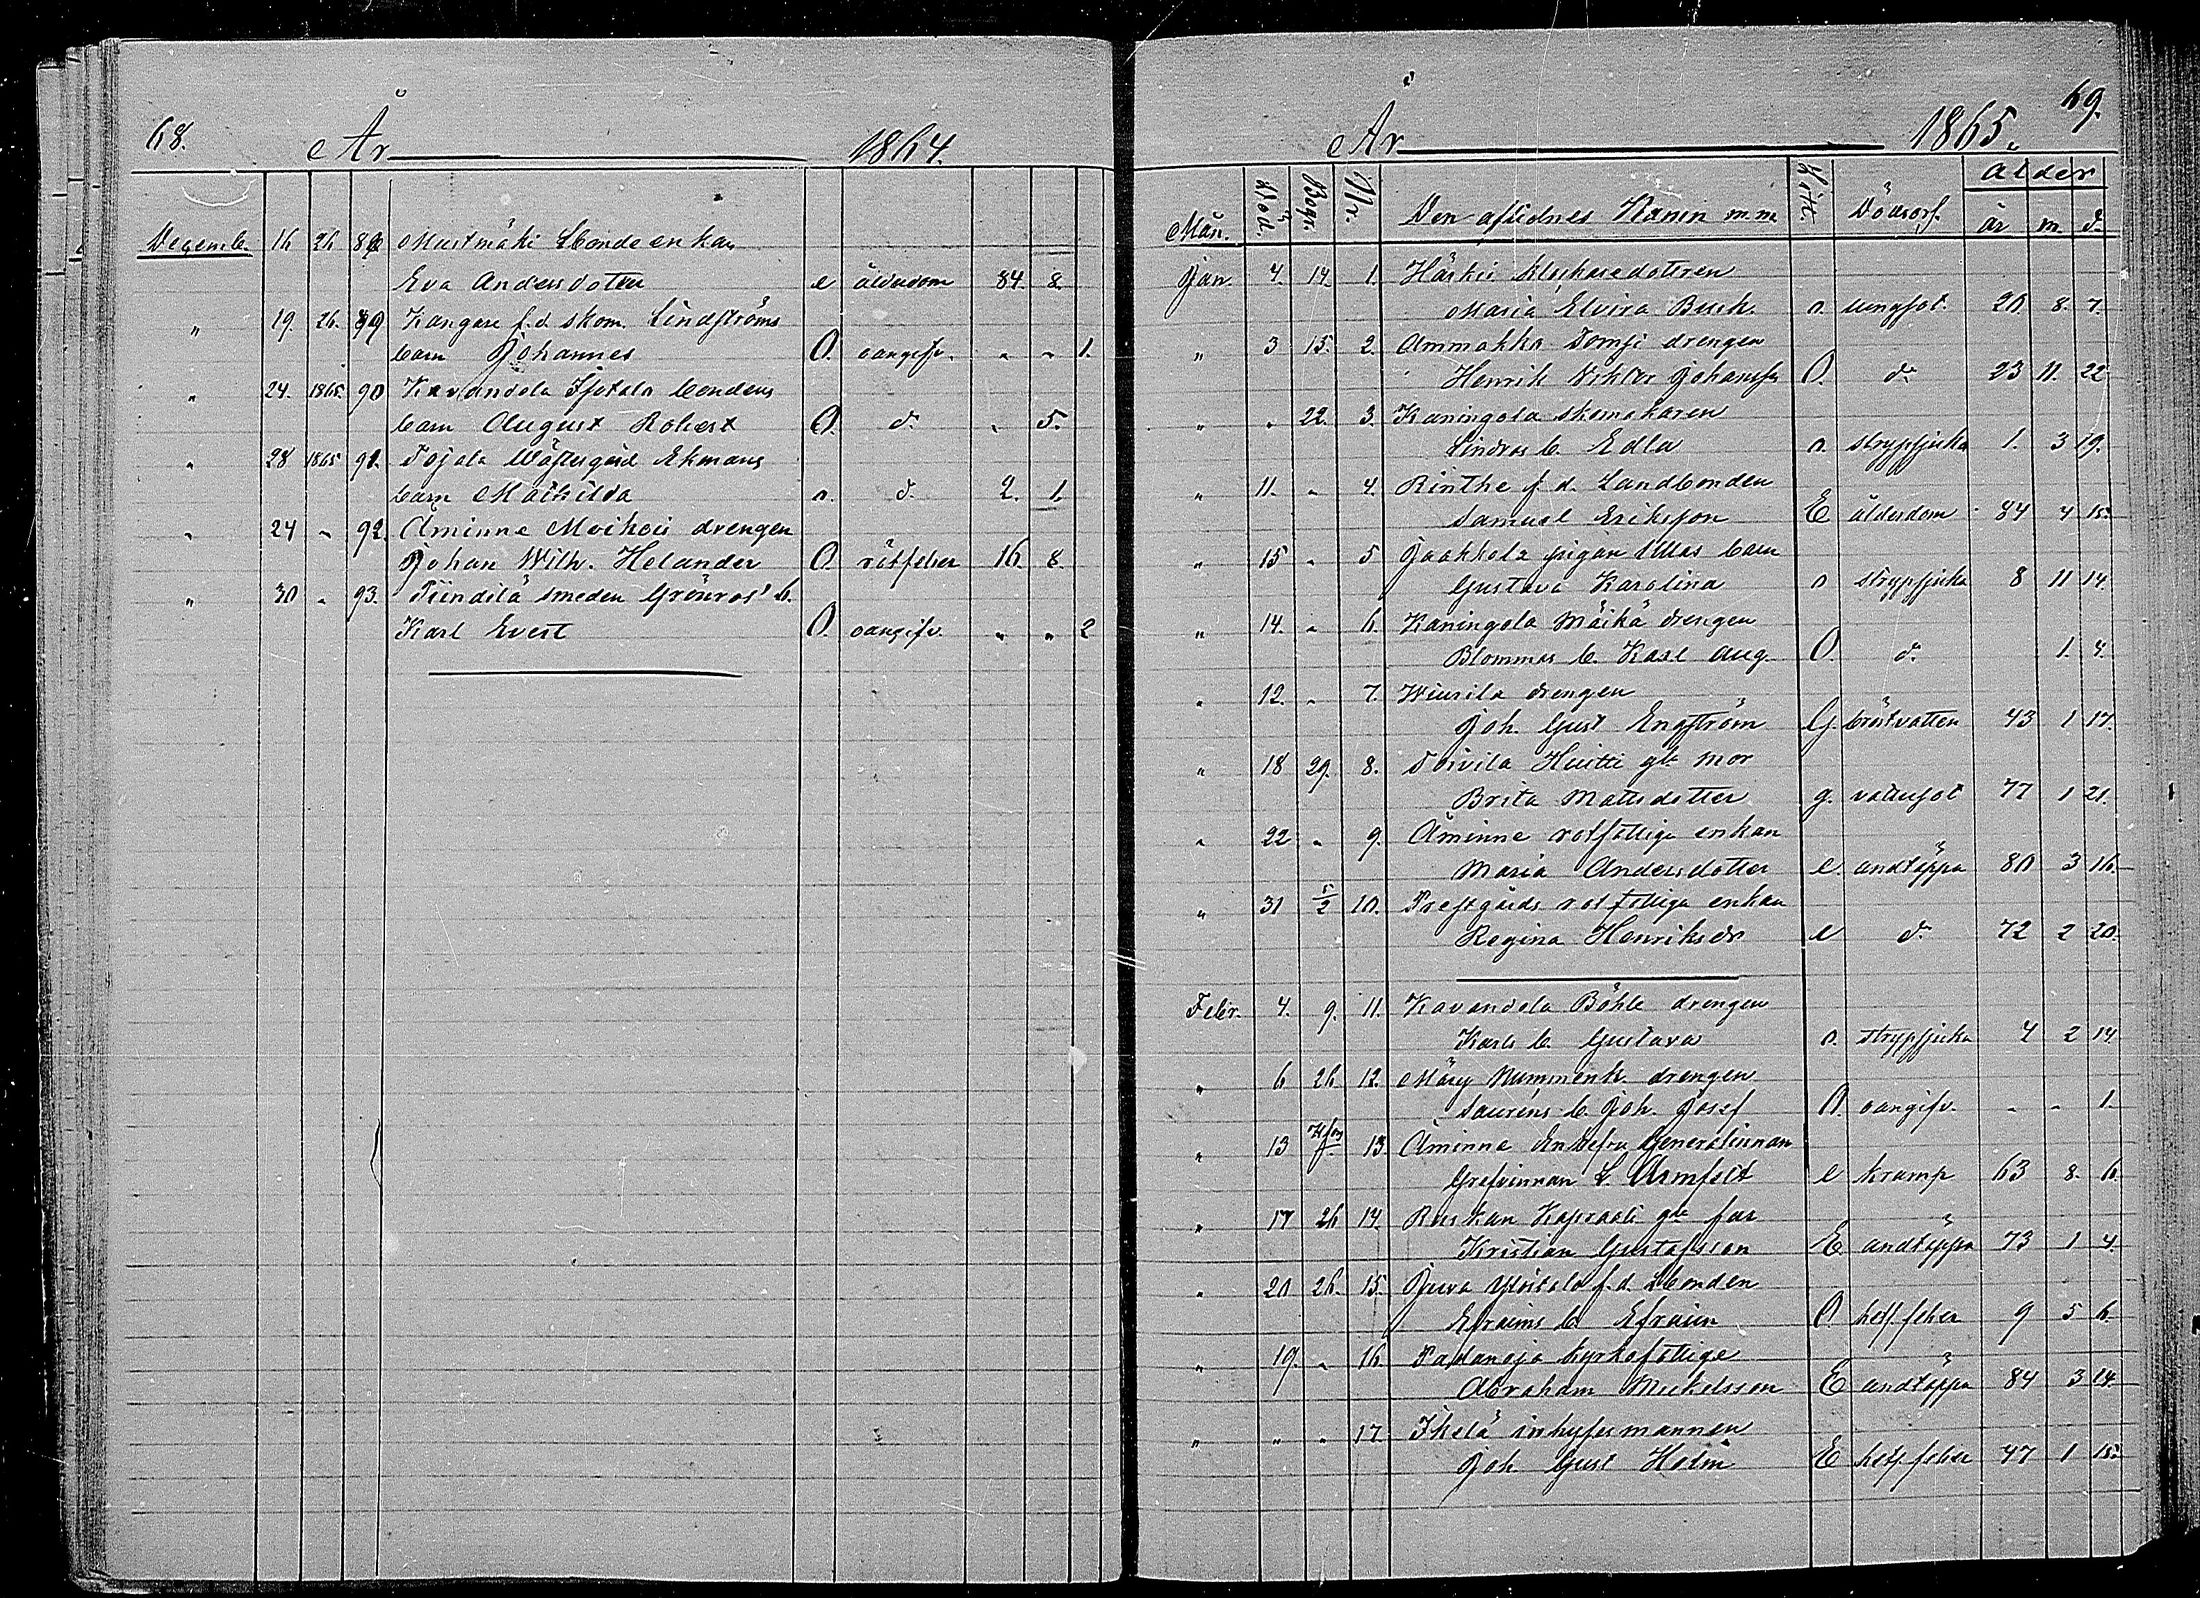 68.
År 1864.
Decemb. 16 26 88 Mustmäki bondeenkan
Eva Andersdotter e ålderdom 84. 8.
" 19. 26. 89 Kangare f.d. skom. Lindströms
barn Johannes O. oangifv. " " 1.
" 24. 1865. 90 Kavandola bondens
barn August Robert O. d:o " 5.
" 28 1865 91. Tojala Wästergård Ekmans
barn Mathilda o. d:o 2. 1.
" 24 " 92. Åminne Moikois drengen
Johan Wilh. Helander O. rötfeber 16. 8.
" 30 " 93. Piindilä smeden Grönros' b.
Karl Evert O. oangifv. " " 2
69.
År 1865.
Mån. Död. Begr. Nr. Den aflidnes Namn m.m. Dödsors. ålder
år m. d.
Jan. 4. 14. 1. Härkis klockaredottren
Maria Elvira Buch. o. lungsot. 20. 8. 7.
" 3 15. 2. Ammakko Tomji drengen
Henrik Viktor Johansson O. d:o 23 11. 22
" " 22. 3. Kaningola skomakaren
Lindros b. Edla o. strypsjuka 1. 3 19.
" 11. " 4. Rinthe f.d. Landbonden
Samuel Eriksson E ålderdom 84 4 15.
" 15 " 5 Jaakkola pigan Ullas barn
Gustava Karolina o strypsjuka 8 11 14.
" 14. " 6. Kaningola Mäikä drengen
Blommas b. Karl Aug. O. d:o 1. 4.
" 12. " 7. Wiurila drengen
Joh. Gust Engström G. bröstvatten 43 1 17.
" 18 29. 8. Toivila Huitti gb mor
Brita Mattsdotter g. vattusot 77 1 21.
" 22 " 9. Åminne rotfattiga enkan
Maria Andersdotter e. andtäppa 80 3 16.
" 31 5/2 10. Prestgårds rotfattiga enkan
Regina Henriksdr e d:o 72 2 20.
Febr. 4. 9. 11. Kavandola Böhle drengen
Karls b. Gustava o. strypsjuka 4 2 14
" 6 26 12. Märy Nummenk. drengen
Lauréns b. Joh. Josef O. oangifv. " " 1.
" 13 H:fors 13. Åminne Enkefru Generalinnan
Grefvinnan L. Armfelt e kramp 63 8. 6.
" 17 26 14. Ruskan Kapraali gb far
Kristian Gustafsson E. andtäppa 73 1 4.
" 20 26. 15. Juva f.d. bonden
Efraims b Efraim O hetf. feber 9 5 6.
" 19. " 16 Padanoja kyrkofattige
Abraham Mickelsson E andtäppa 84 3 14.
" " " 17. Ikelä inhysesmannen
Joh. Gust Holm E hetf. feber 47 1 15.